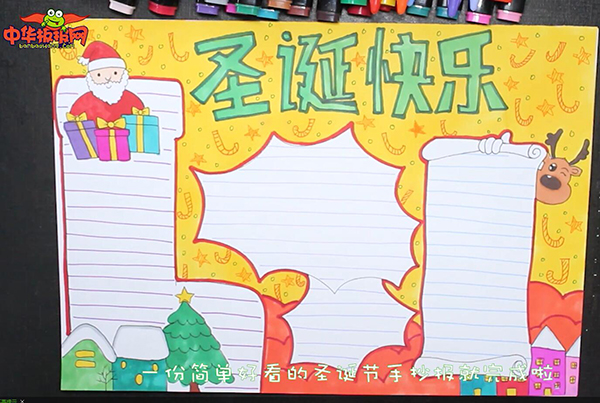 中华板报网
圣诞快乐
一份简单好看的圣诞节手抄报就完成啦